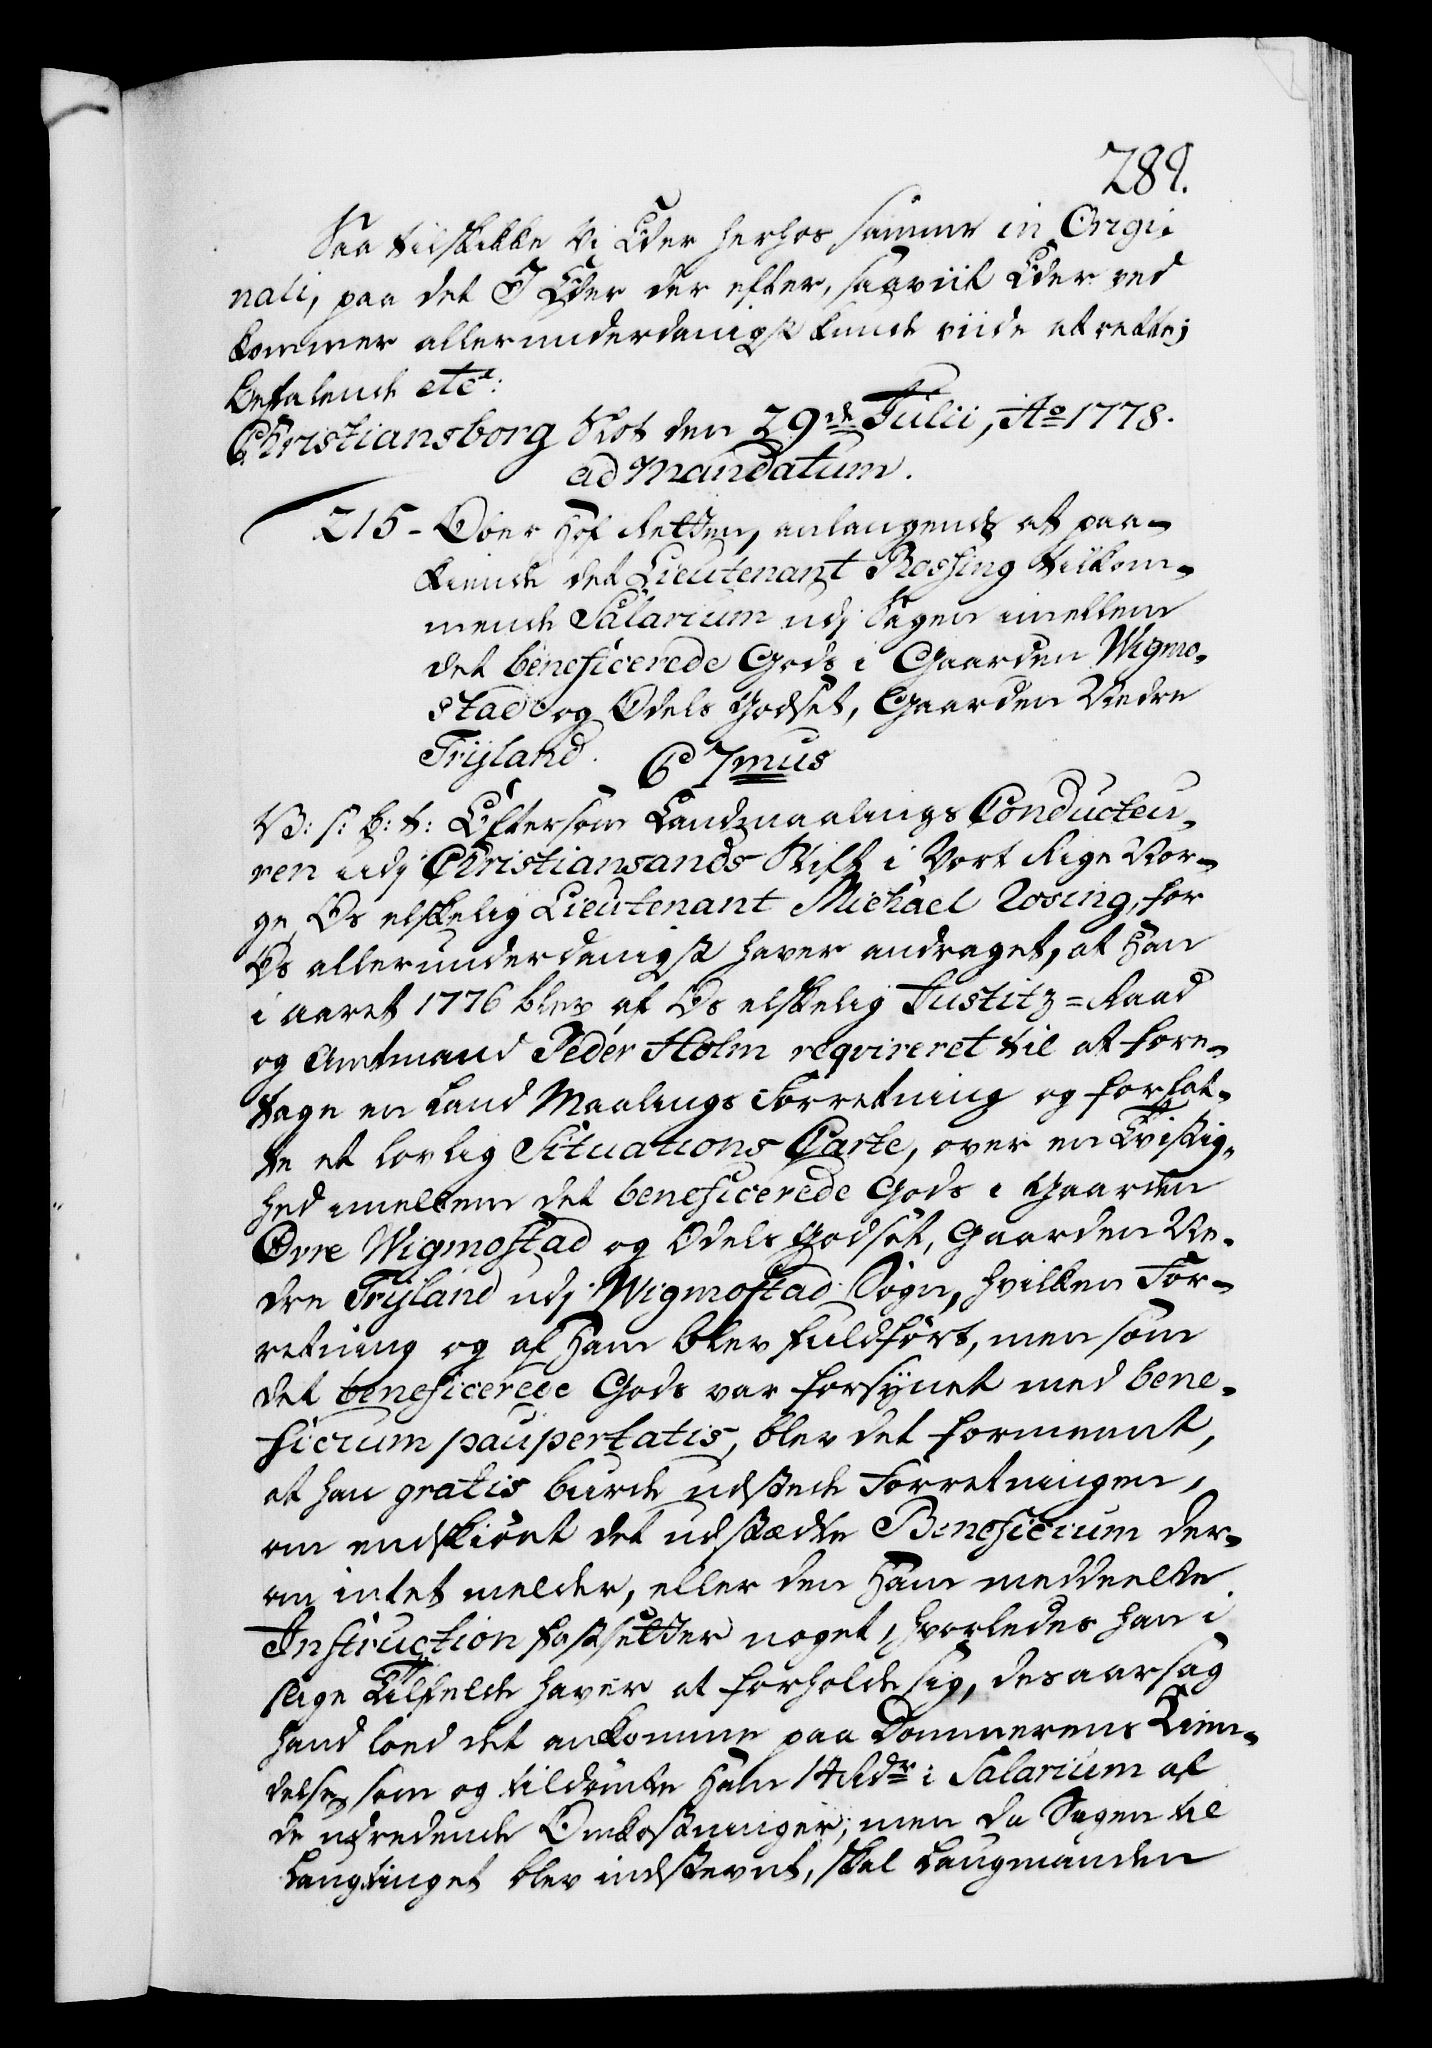 289.
Saa tilskikke Vi Eder herhos samme in Origi-
nali, paa det I Eder der efter, saaviit Eder ved
kommer allerunderdanigst kunde viide at rette;
befalende etc:
Christiansborg Slot den 29de Julii, Ao 1778.
ad Mandatum.
215 - Over Hof Retten, anlangende at paa-
kiende det Lieutenant Rossing tilkom-
mende Salarium udj Sagen imellem
det beneficerede Gods i Gaarden Wigmo-
stad og Odels Godset, Gaarden Nedre
Trijland. C 7mus
V: s: G: t: Eftersom Landmaalings Conducteu-
ren udj Christiansands Stift i Vort Rige Nor-
ge, Os elskelig Lieutenant Michael Rosing, for
Os allerunderdanigst haver andraget, at Han
i aaret 1776 blev af Os elskelig Justitz=Raad
og Amtmand Peder Holm reqvireret til at fore-
tage en Land Maalings Forretning og forfat-
te et lovlig Situations Carte, over en Tvistig-
hed imellem det beneficerede Gods i Gaarden
Øvre Wigmostad og Odels Godset, Gaarden Ne-
dre Trijland udj Wigmostad Sogn, hvilken For-
retning og af Ham blev fuldført, men som
det beneficerede Gods var forsÿnet med bene-
ficium paupertatis, blev det formeent,
at han gratis burde udstede Forretningen,
om endskiønt det udstædte Beneficium der-
om intet melder, eller den Ham meddeelte
Instruction fastsetter noget, hvorledes han i
slige Tilfelde haver at forholde sig, desaarsag
hand loed det ankomme paa Dommerens Kien-
delse, som og tildømte Ham 14 Rdr i Salarium af
de udredende Omkostninger; men da Sagen til
Laugtinget blev indstevnt, skal Laugmanden